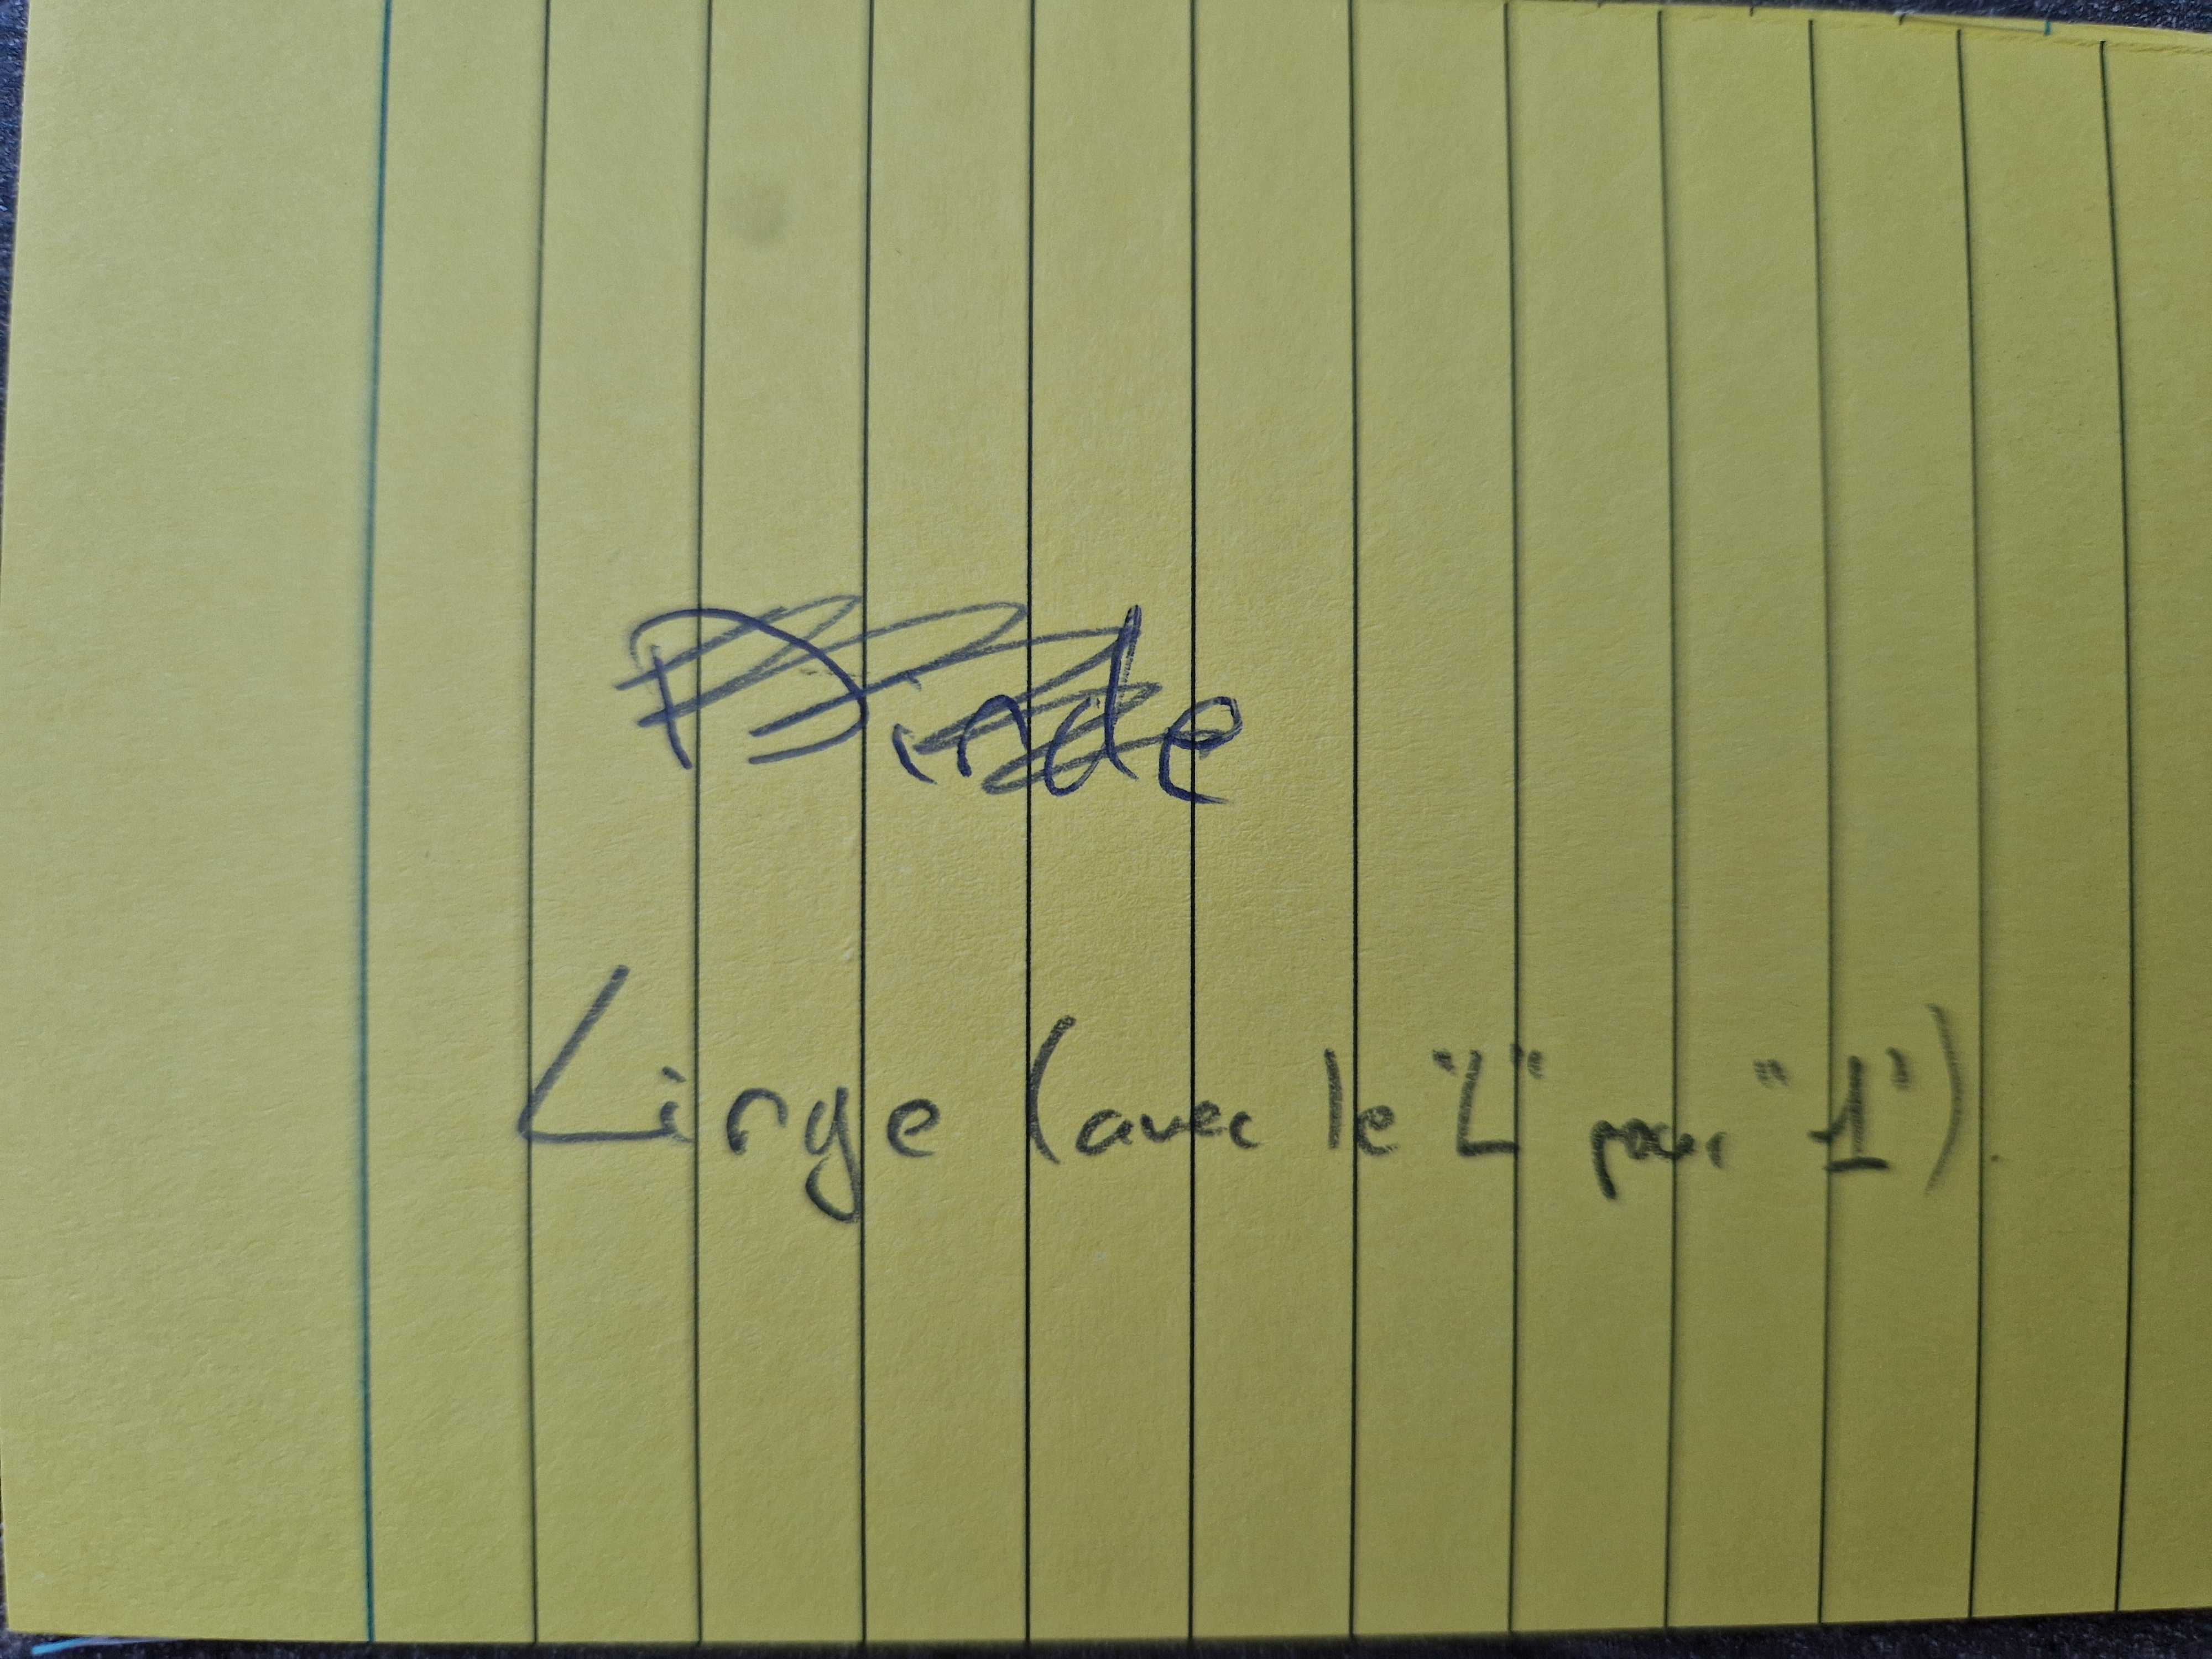 Dinde
Linge (avec le "L" pour "1").